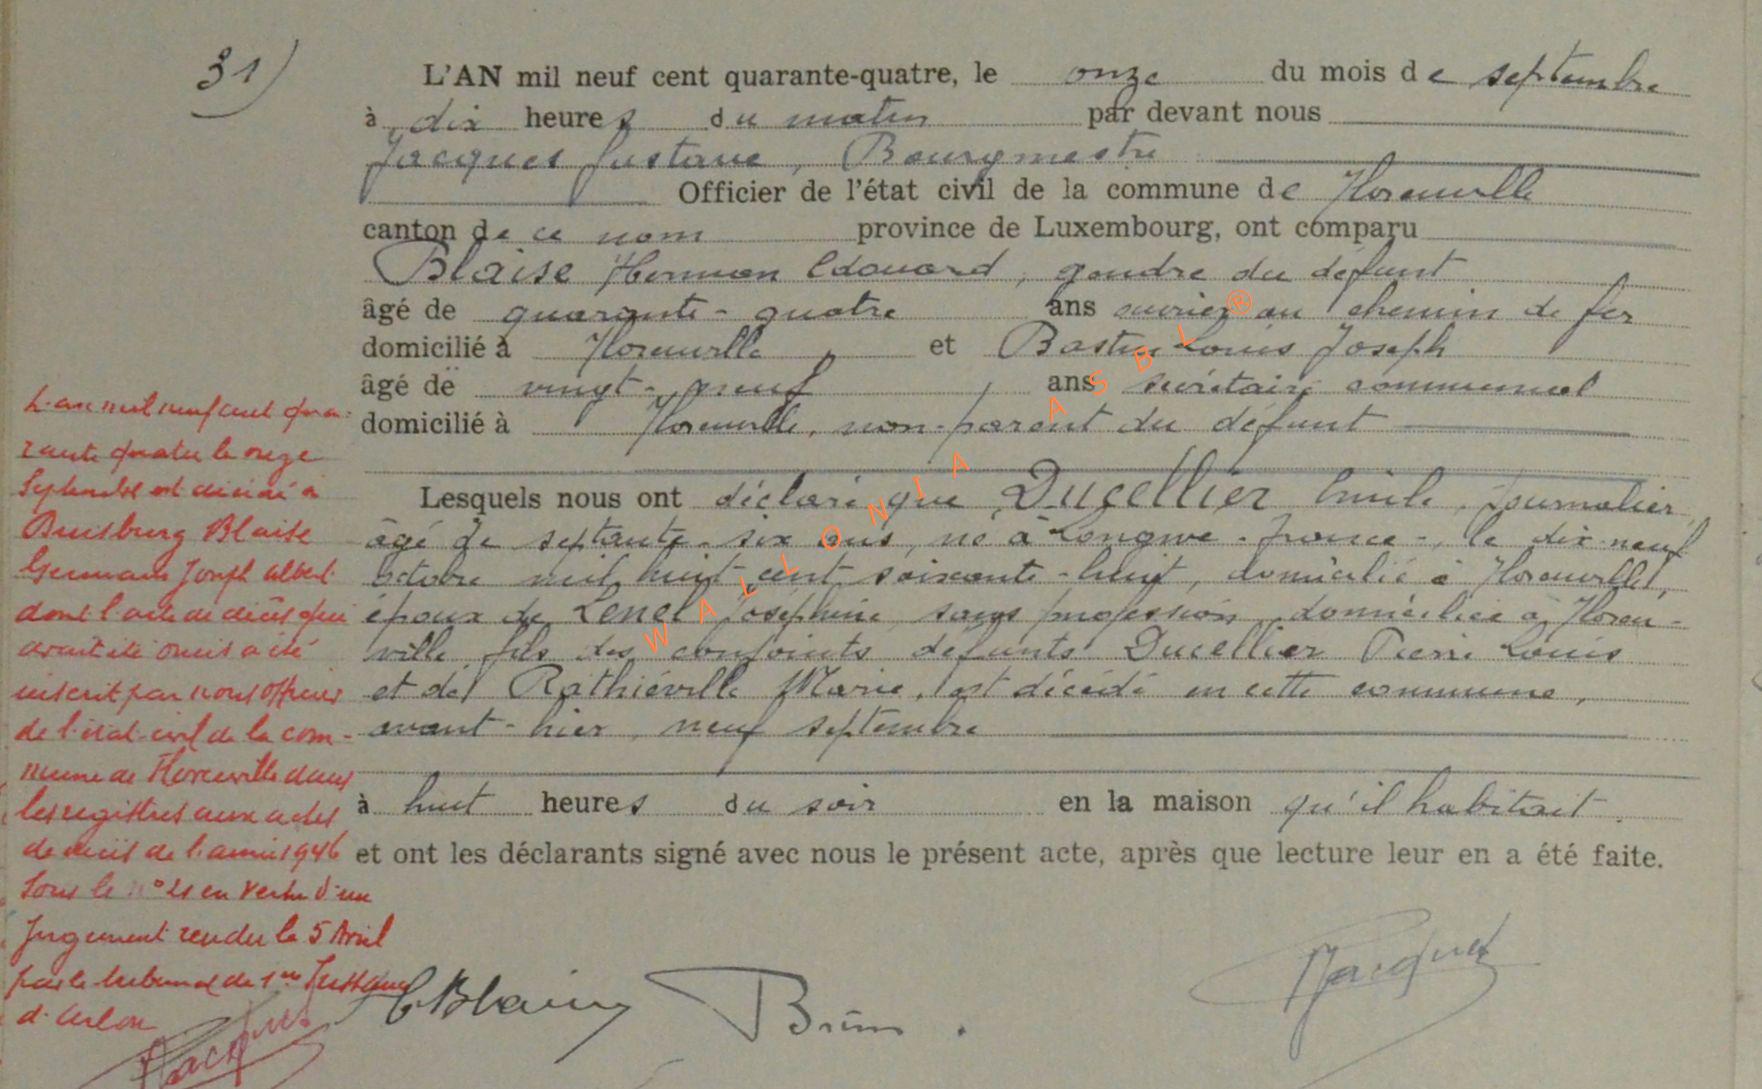 31)
L'AN mil neuf cent quarante-quatre, le onze du mois de septembre
à dix heures du matin par devant nous
Jacques Gustave, Bourgmestre
Officier de l'état civil de la commune de Florenville
canton de ce nom province de Luxembourg, ont comparu
Blaise Herman Edouard, gendre du défunt
âgé de quarante-quatre ans ouvrier au chemin de fer
domicilié à Florenville et Bastin Louis Joseph
âgé de vingt-neuf ans secrétaire communal
domicilié à Florenville, non-parent du défunt
Lesquels nous ont déclaré que Ducellier Emile, journalier,
âgé de septante-six ans, né à Longwy-France-, le dix-neuf
octobre mil huit cent soixante-huit, domicilié à Florenville,
époux de Lenel Joséphine sans profession, domiciliée à Floren-
ville, fils des conjoints défunts Ducellier Pierre Louis
et de Rathiéville Marie, est décédé en cette commune,
avant-hier, neuf septembre
à huit heures du soir en la maison qu'il habitait
et ont les déclarants signé avec nous le présent acte, après que lecture leur en a été faite.
L'an mil neuf cent qua-
rante quatre le onze
Septembre est décédé à
Duisburg Blaise
Germain Joseph Albert
dont l'acte de décès qui
avait été omis a été
inscrit par nous Officier
de l'état-civil de la com-
mune de Florenville dans
les registres aux actes
de décès de l'année 1946
sous le n° 21 en vertu d'un
Jugement rendu le 5 Avril
par le tribunal de 1ère Instance
d'Arlon
Jacques
HBlaise
Jacques
WALLONIA ASBL ®